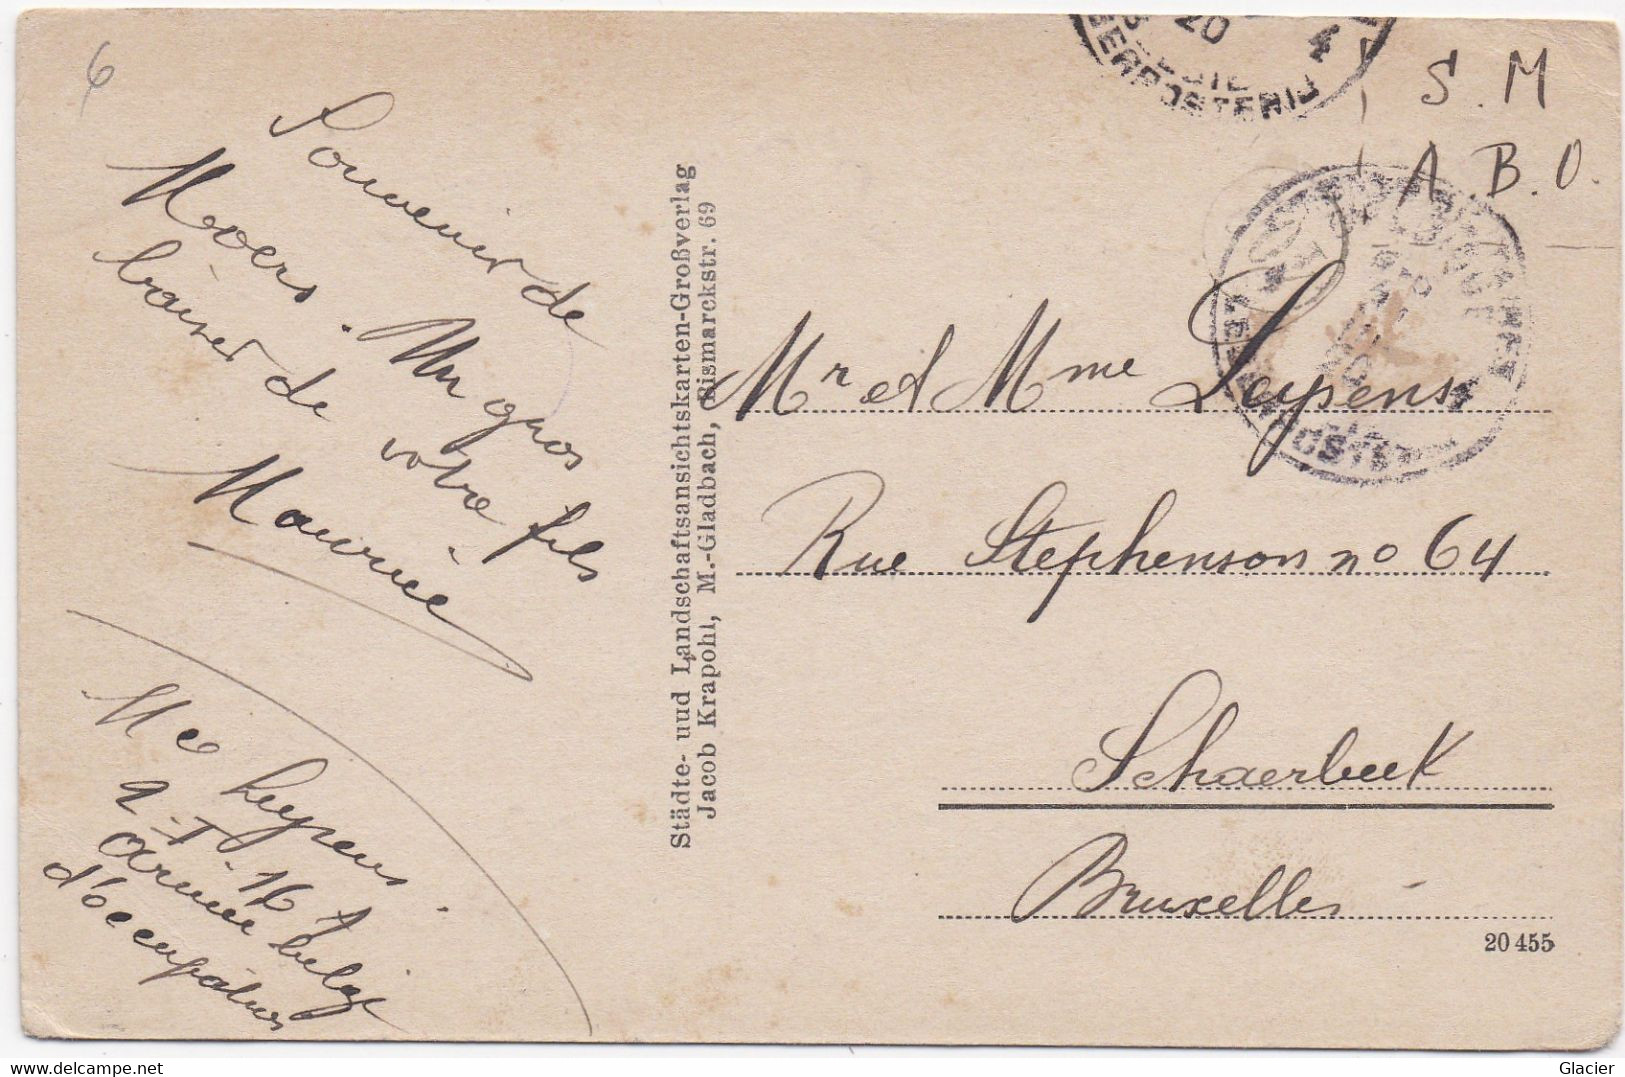 6
Souvenir de
Moers. Un gros
baiser de votre fils
Maurice
Mce Leypens.
9 T 16 A
armée belge
d'occupation
Städte- uud Landschaftsansichtskarten-Großverlag
Jacob Krapohl, M.-Gladbach, Bismarckstr. 69
20 4
LEGERPOSTERIJ
S. M
A. B. O.
Mr et Mme Leypens
Rue Stephenson no 64
Schaerbeek
Bruxelles
20 455
Glacier